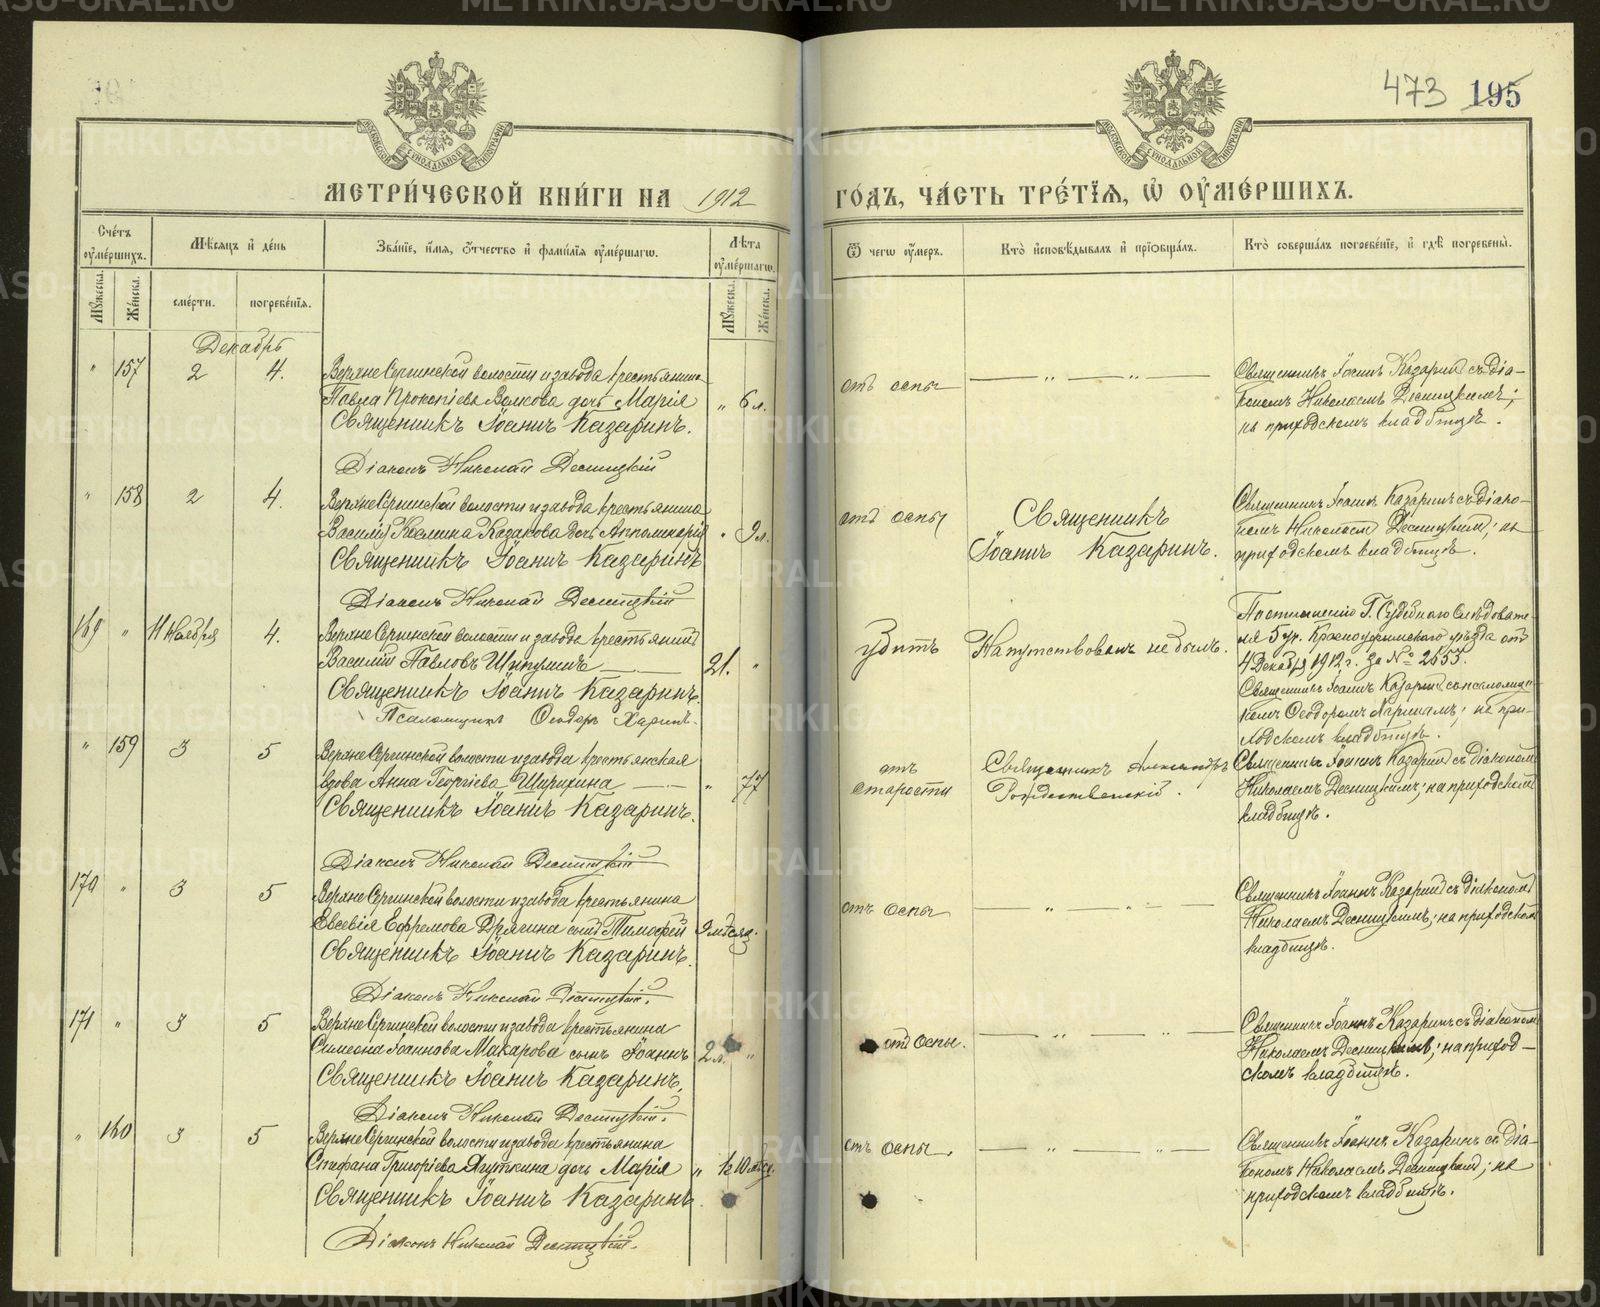 473 195
МОСКОВСКОЙ СѴНОДАЛЬНОЙ ТИПОГРАФІИ
МОСКОВСКОЙ СѴНОДАЛЬНОЙ ТИПОГРАФІИ
МЕТРИ́ЧЕСКОЙ КНИ́ГИ НА 1912 ГО́ДЪ, ЧА́СТЬ ТРЕ́ТІѦ, Ѽ ОУ҆МЕ́РШИХЪ.
Сче́тъ оу҆ме́ршихъ.
Мѣ́сяцъ и҆ де́нь
Зва́нїе, и҆́мѧ, ѻ҆́тчество и҆ фамиі́лїѧ оу҆ме́ршагѡ.
Лѣ́та оу҆ме́ршагѡ.
Ѿ чегѡ̀ оу҆́меръ.
Кто̀ и҆сповѣ́дывалъ и҆ прїѡбща́лъ.
Кто̀ соверша́лъ погребе́нїе, и҆ гдѣ̀ погребены̀.
Мꙋ́жеска. Же́нска. сме́рти. погребе́нїѧ. Мꙋ́жеска. Же́нска.
Декабрь
" 157 2 4. Верхне Сергинской волости и завода крестьянина
Павла Прокопіева Волкова дочь Марія " 6 л.
Священникъ Іоаннъ Казаринъ.
Діаконъ Николай Десницкій
отъ оспы — " — " —
Священникъ Іоаннъ Казаринъ съ діа-
кономъ Николаемъ Десницкимъ;
на приходскомъ кладбищѣ.
" 158 2 4. Верхне Сергинской волости и завода крестьянина
Василія Казакова дочь Апполинарія " 9 л.
Священникъ Іоаннъ Казаринъ
Діаконъ Николай Десницкій
отъ оспы
Священникъ
Іоаннъ Казаринъ.
Священникъ Іоаннъ Казаринъ съ діако-
номъ Николаемъ Десницкимъ; на
приходскомъ кладбищѣ.
169 " 11 Ноября 4. Верхне Сергинской волости и завода крестьянинъ
Василій Павловъ Шипулинъ — 21. "
Священникъ Іоаннъ Казаринъ.
Псаломщикъ Ѳеодоръ Харинъ.
убитъ
Напутствованъ не былъ.
Г. Судебнаго Слѣдовате-
ля 5 уч. Красноуфимскаго уѣзда отъ
4 Декабря 1912 г. за № 2553.
Священникъ Іоаннъ Казаринъ съ псаломщи-
комъ Ѳеодоромъ Харинымъ; на при-
ходскомъ кладбищѣ.
" 159 3 5 Верхне Сергинской волости и завода крестьянская
вдова Анна Георгіева Ширяхина — " 77
Священникъ Іоаннъ Казаринъ.
Діаконъ Николай Десницкій
отъ
старости
Священникъ Александръ
Рождественскій.
Священникъ Іоаннъ Казаринъ съ діакономъ
Николаемъ Десницкимъ; на приходскомъ
кладбищѣ.
170 " 3 5 Верхне Сергинской волости и завода крестьянина
Евсевія Ефремова Дрягина сынъ Тимоѳей 9 мѣсяц.
Священникъ Іоаннъ Казаринъ.
Діаконъ Николай Десницкій.
отъ оспы — " — " —
Священникъ Іоаннъ Казаринъ съ діакономъ
Николаемъ Десницкимъ; на приходскомъ
кладбищѣ.
171 " 3 5 Верхне Сергинской волости и завода крестьянина
Симеона Іоаннова Макарова сынъ Іоаннъ 2 л. "
Священникъ Іоаннъ Казаринъ.
Діаконъ Николай Десницкій.
отъ оспы. — " — " —
Священникъ Іоаннъ Казаринъ съ діакономъ
Николаемъ Десницкимъ; на приход-
скомъ кладбищѣ.
" 160 3 5 Верхне Сергинской волости и завода крестьянина
Стефана Григоріева Ягуткина дочь Марія "
Священникъ Іоаннъ Казаринъ.
Діаконъ Николай Десницкій.
отъ оспы. — " — " —
Священникъ Іоаннъ Казаринъ съ діа-
кономъ Николаемъ Десницкимъ; на
приходскомъ кладбищѣ.
METRIKI.GASO-URAL.RU